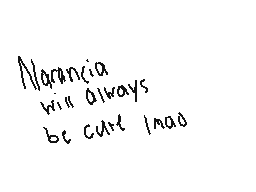 Narancia
will always
be cute lmao